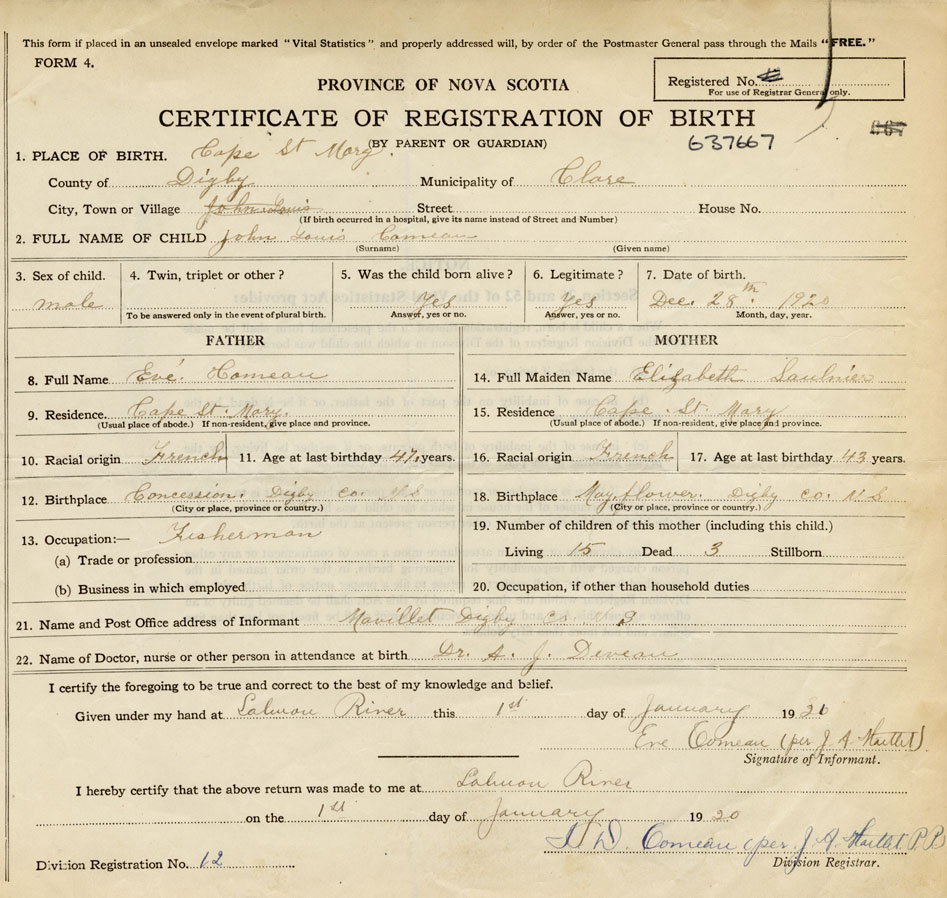 This form if placed in an unsealed envelope marked "Vital Statistics" and properly addressed will, by order of the Postmaster General pass through the Mails "FREE."
FORM 4.
Registered No.
For use of Registrar General only.
PROVINCE OF NOVA SCOTIA
CERTIFICATE OF REGISTRATION OF BIRTH
(BY PARENT OR GUARDIAN)
637667
1. PLACE OF BIRTH. Cape St Mary
County of Digby Municipality of Clare
City, Town or Village John Louis Street House No.
(If birth occurred in a hospital, give its name instead of Street and Number)
2. FULL NAME OF CHILD John Louis Comeau
(Surname) (Given name)
3. Sex of child. 4. Twin, triplet or other? 5. Was the child born alive? 6. Legitimate? 7. Date of birth.
male Yes Yes Dec. 28th. 1920
To be answered only in the event of plural birth. Answer, yes or no. Answer, yes or no. Month, day, year.
FATHER MOTHER
8. Full Name Evé Comeau 14. Full Maiden Name Elizabeth Saulnier
9. Residence. Cape St. Mary. 15. Residence Cape St. Mary
(Usual place of abode.) If non-resident, give place and province. (Usual place of abode.) If non-resident, give place and province.
10. Racial origin French 11. Age at last birthday 47 years. 16. Racial origin French 17. Age at last birthday 43 years.
12. Birthplace Concession. Digby Co. N.S 18. Birthplace Mayflower. Digby Co. N.S
(City or place, province or country.) (City or place, province or country.)
13. Occupation:— Fisherman 19. Number of children of this mother (including this child.)
(a) Trade or profession Living 15 Dead 3 Stillborn
(b) Business in which employed 20. Occupation, if other than household duties
21. Name and Post Office address of Informant Mavillet Digby Co.
22. Name of Doctor, nurse or other person in attendance at birth Dr. A. J. Deveau
I certify the foregoing to be true and correct to the best of my knowledge and belief.
Given under my hand at Salmon River this 1st day of January 19
Eve Comeau (per J A Maillet)
Signature of Informant.
I hereby certify that the above return was made to me at Salmon River
on the 1st day of January 1920
D. Comeau (per J. A. Maillet P.B
Division Registration No. 12 Division Registrar.